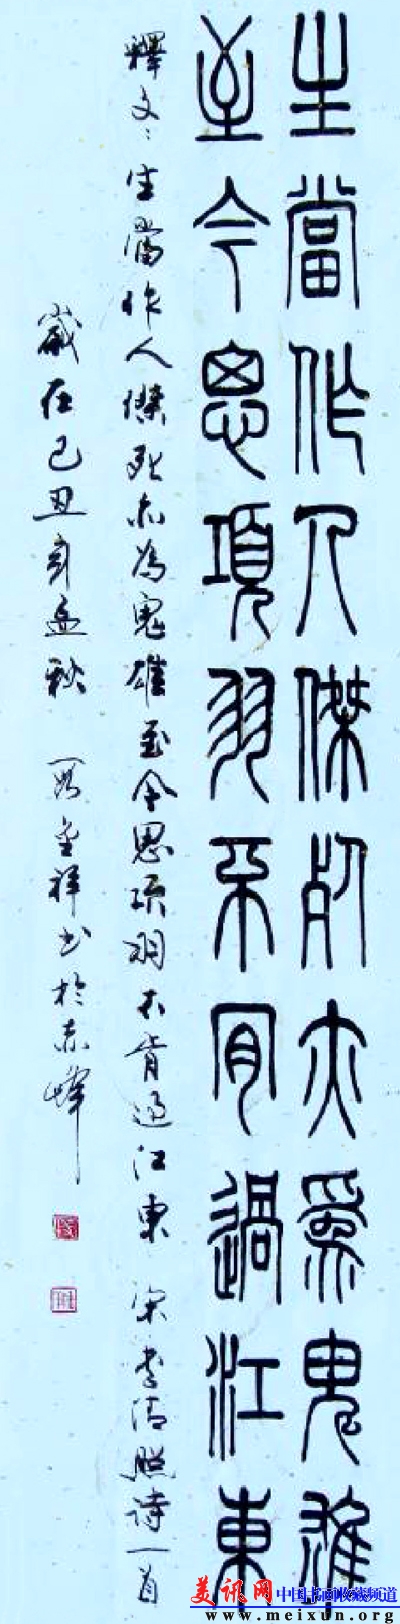 生當作人傑死亦為鬼雄
至今思項羽不肯過江東
釋文：生當作人傑死亦為鬼雄至今思項羽不肯過江東 宋李清照詩一首
歲在己丑年孟秋 段金祥书於赤峰
美讯网 中国书画收藏频道
www.meixun.org